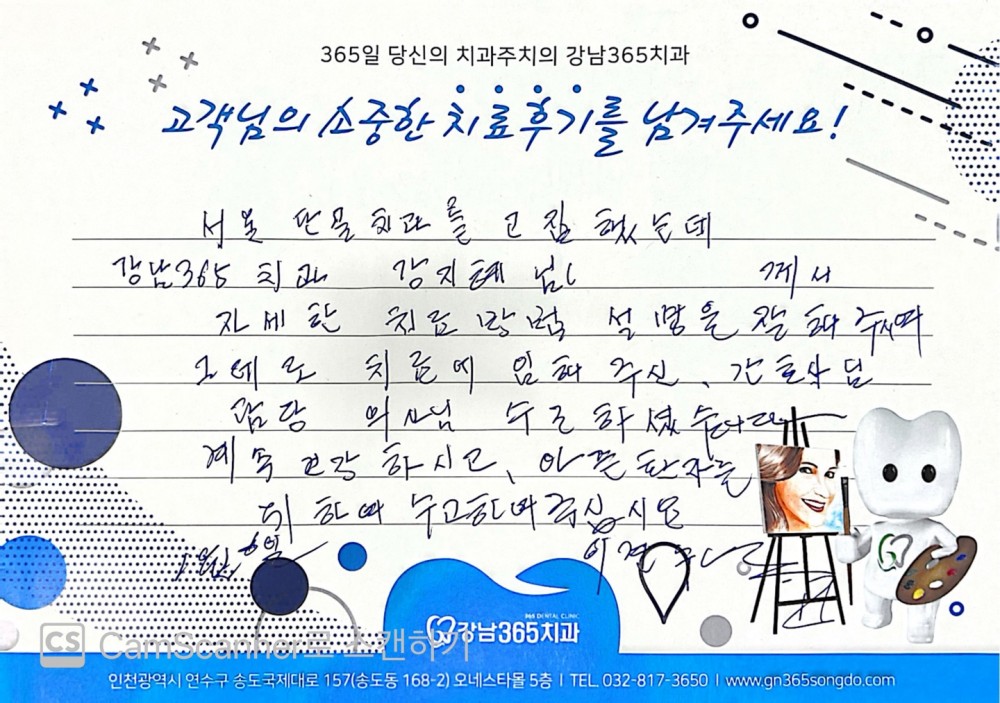 365일 당신의 치과주치의 강남365치과
고객님의 소중한 치료후기를 남겨주세요!
서울 단골치과를 고집 했는데
강남365 치과 강지혜 님 께서
자세한 치료 방법 설명을 잘 해 주시며
치료에 임해 주신, 간호사님
담당 의사님 수고 하셨습니다
계속 건강 하시고, 아픈 환자를
위 하여 수고하여 주십시요
1월 6일
365 DENTAL CLINIC
강남365치과
CS CamScanner로 스캔하기
인천광역시 연수구 송도국제대로 157(송도동 168-2) 오네스타몰 5층 | TEL. 032-817-3650 | www.gn365songdo.com